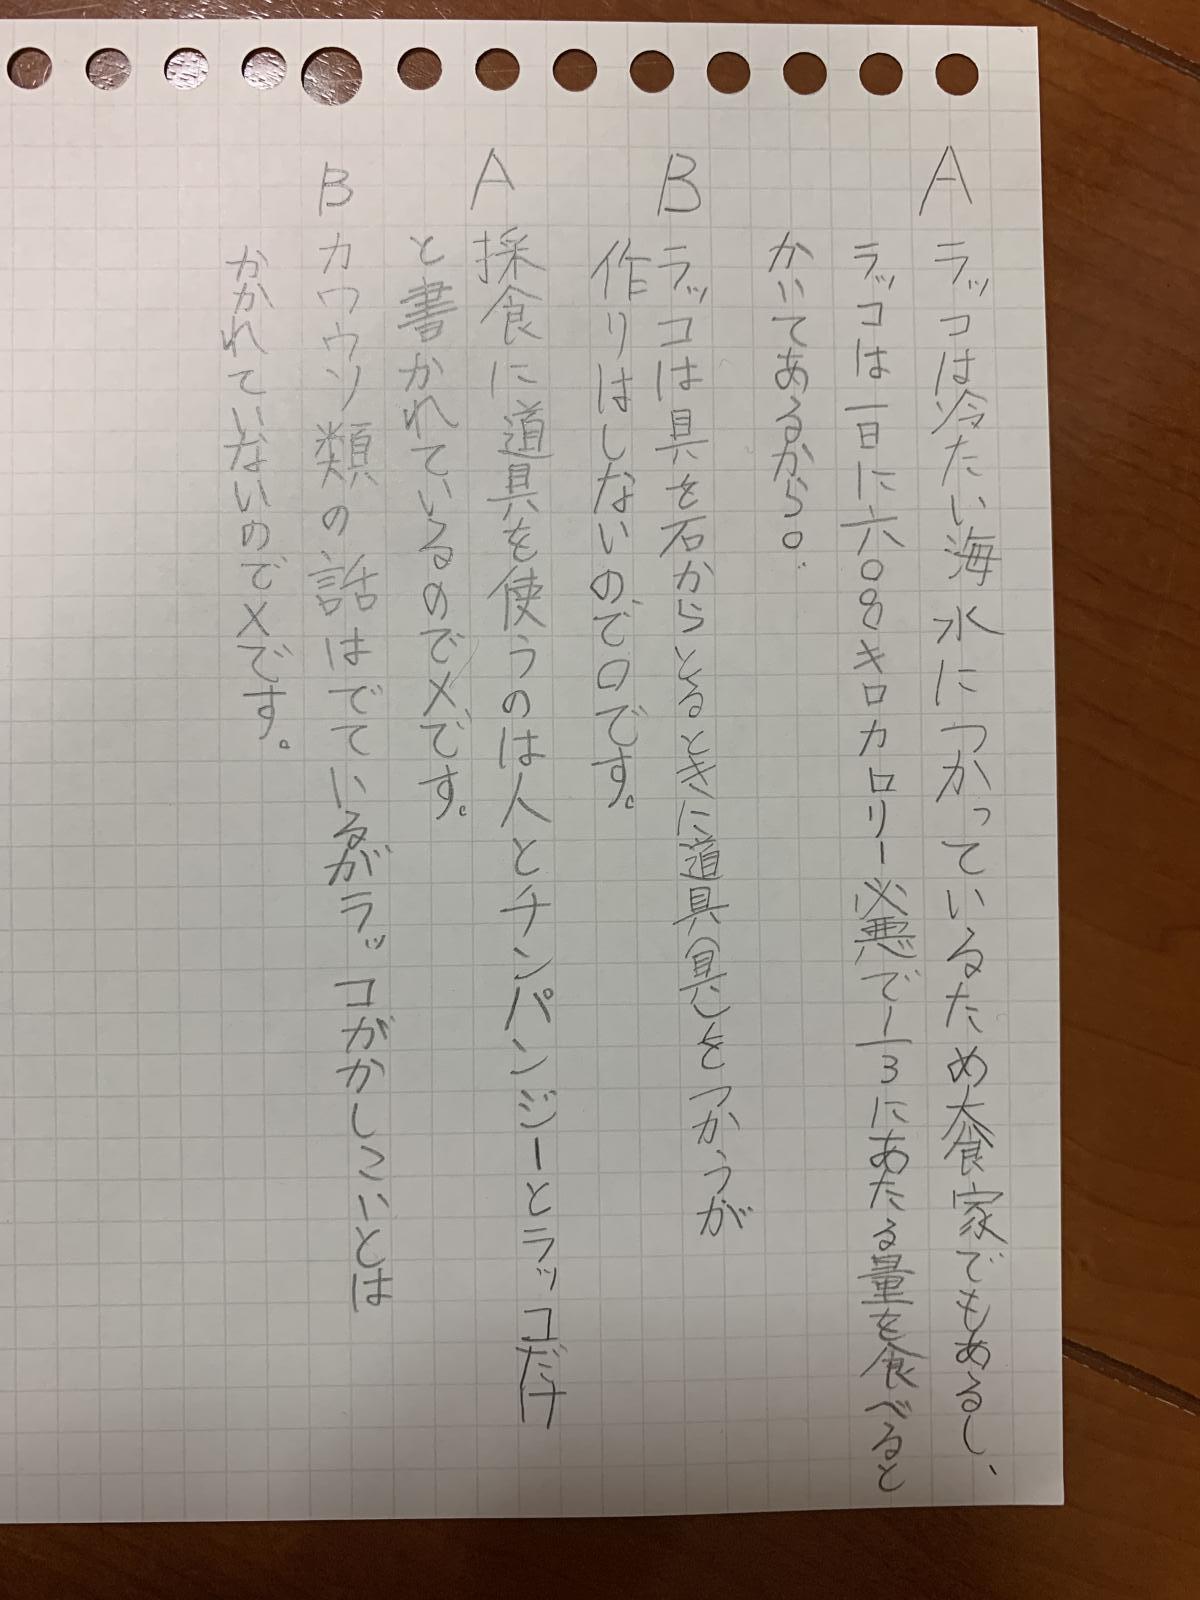 A ラッコは冷たい海水につかっているため大食家でもあるし、
ラッコは一日に六〇8キロカロリー必悪で1/3にあたる量を食べると
かいてあるから○.
B ラッコは具を石からとるときに道具(具)をつかうが
作りはしないので○です。
A 採食に道具を使うのは人とチンパンジーとラッコだけ
と書かれているので×です。
B カワウソ類の話はでているがラッコがかしこいとは
かかれていないので×です。